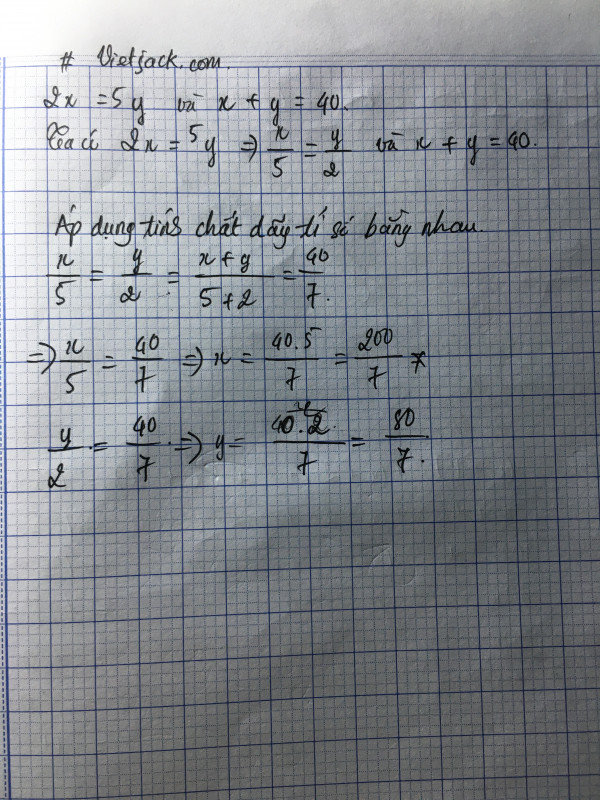 # Vietjack.com.
2x = 5y và x + y = 40.
Ta có 2x = 5y => x/5 = y/2 và x + y = 40.
Áp dụng tính chất dãy tỉ số bằng nhau.
x/5 = y/2 = x+y/5+2 = 40/7.
=> x/5 = 40/7 => x = 40.5/7 = 200/7
y/2 = 40/7 => y = 40.2/7 = 80/7.